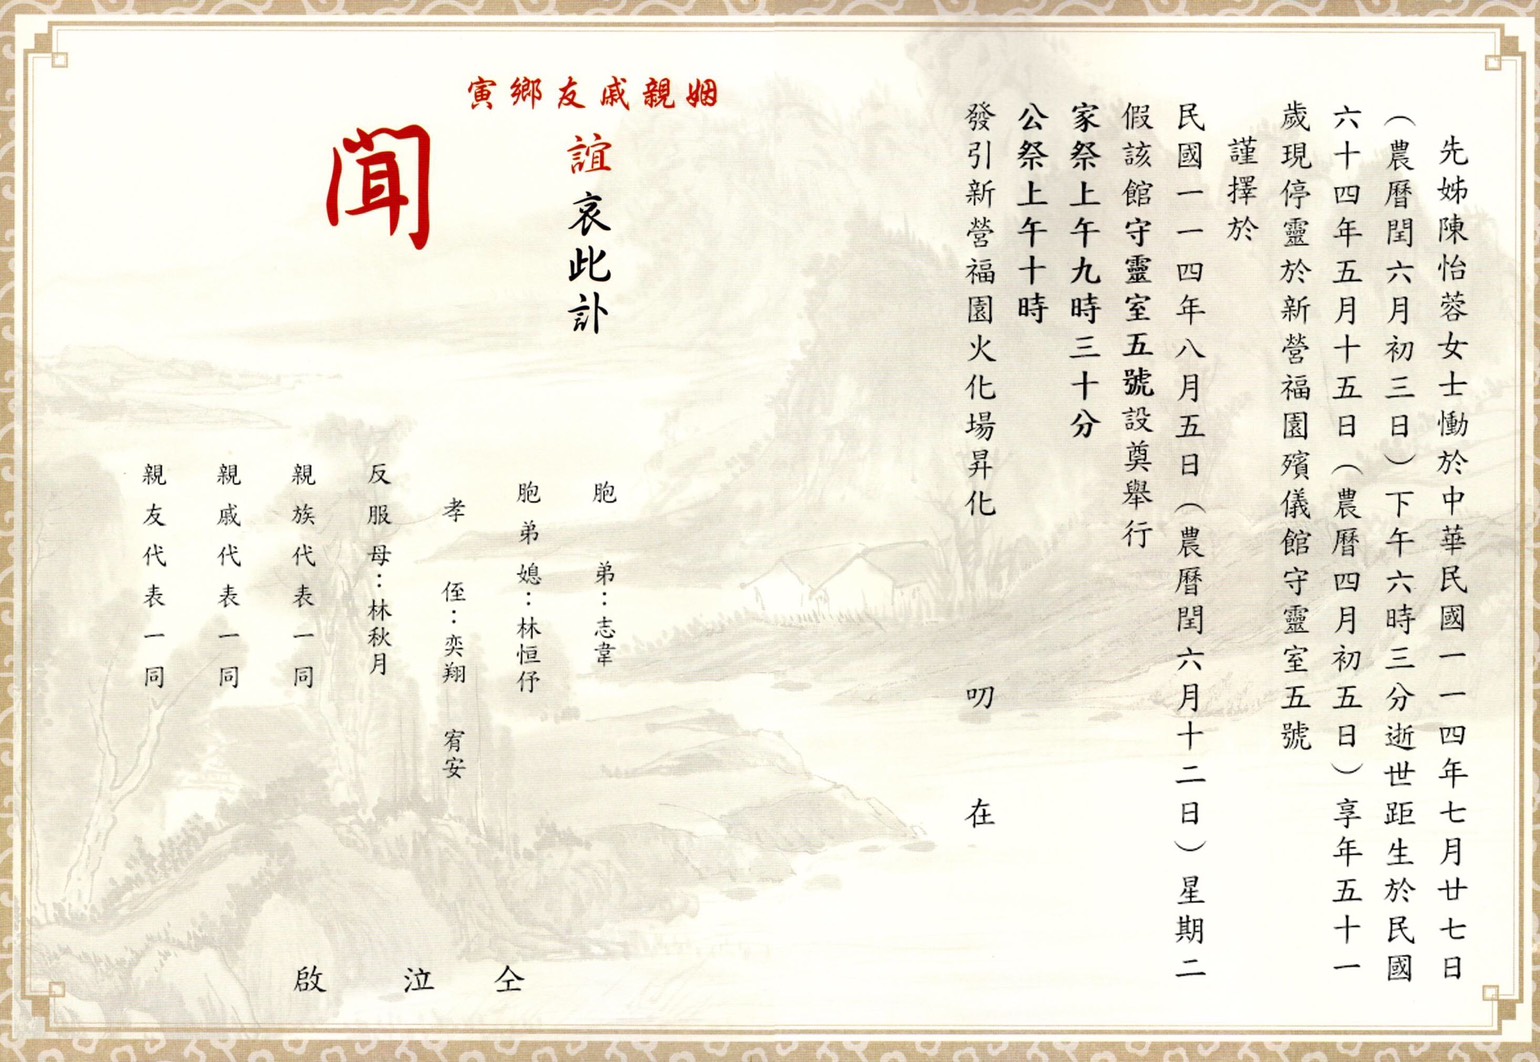 先姊陳怡蓉女士慟於中華民國一一四年七月廿七日
（農曆閏六月初三日）下午六時三分逝世距生於民國
六十四年五月十五日（農曆四月初五日）享年五十一
歲現停靈於新營福園殯儀館守靈室五號
謹擇於
民國一一四年八月五日（農曆閏六月十二日）星期二
假該館守靈室五號設奠舉行
家祭上午九時三十分
公祭上午十時
發引新營福園火化場昇化 叨 在
姻親戚友鄉寅
誼哀此訃
聞
胞弟：志韋
胞弟媳：林恒伃
孝侄：奕翔 宥安
反服母：林秋月
親族代表一同
親戚代表一同
親友代表一同
仝 泣 啟